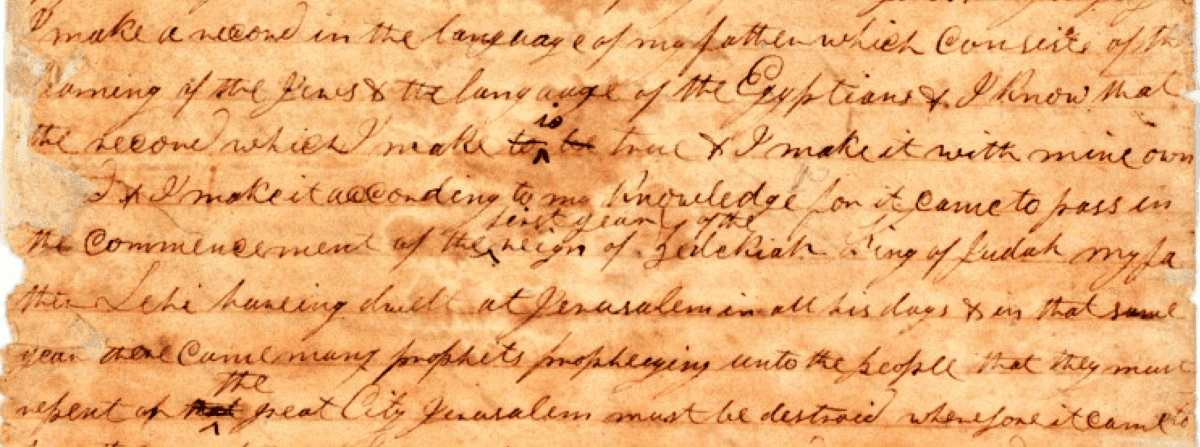 I make a record in the language of my father which consists of the
Larning of the Jews & the language of the Egyptians & I know that
is
the record which I make to be true & I make it with mine own
d & I make it according to my knowledge for it came to pass in
first year of the
the commencement of the reign of zedekiah King of Judah my fa
ther Lehi haveing dwelt at Jerusalem in all his days & in that same
year there came many prophets prophesying unto the people that they must
the
repent or that great City Jerusalem must be destroid wherefore it came to